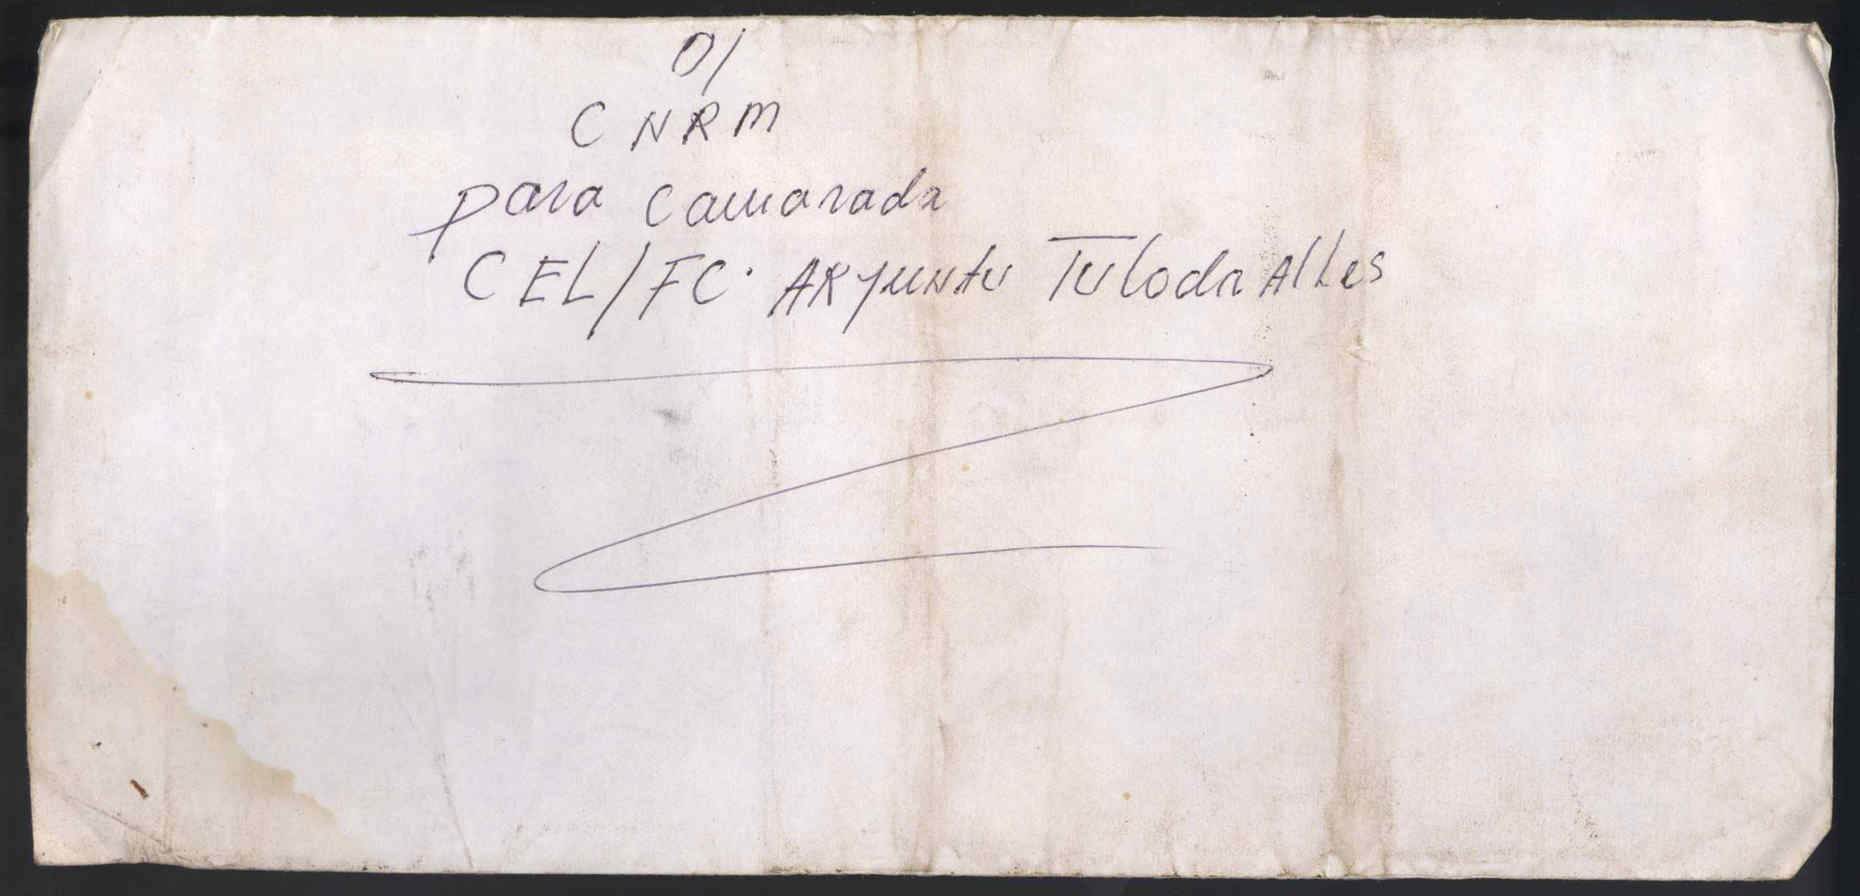 O/
CNRM
para camarada
CEL/FC. ARJUNTU TULODA Alles